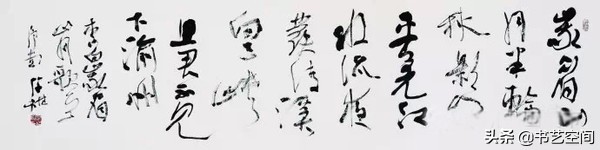 峩眉山
月半輪
秋影入
平羌江
水流夜
發清溪
向三峡
思君不見
下渝州
李白峩眉
山月歌
头条 @书艺空间